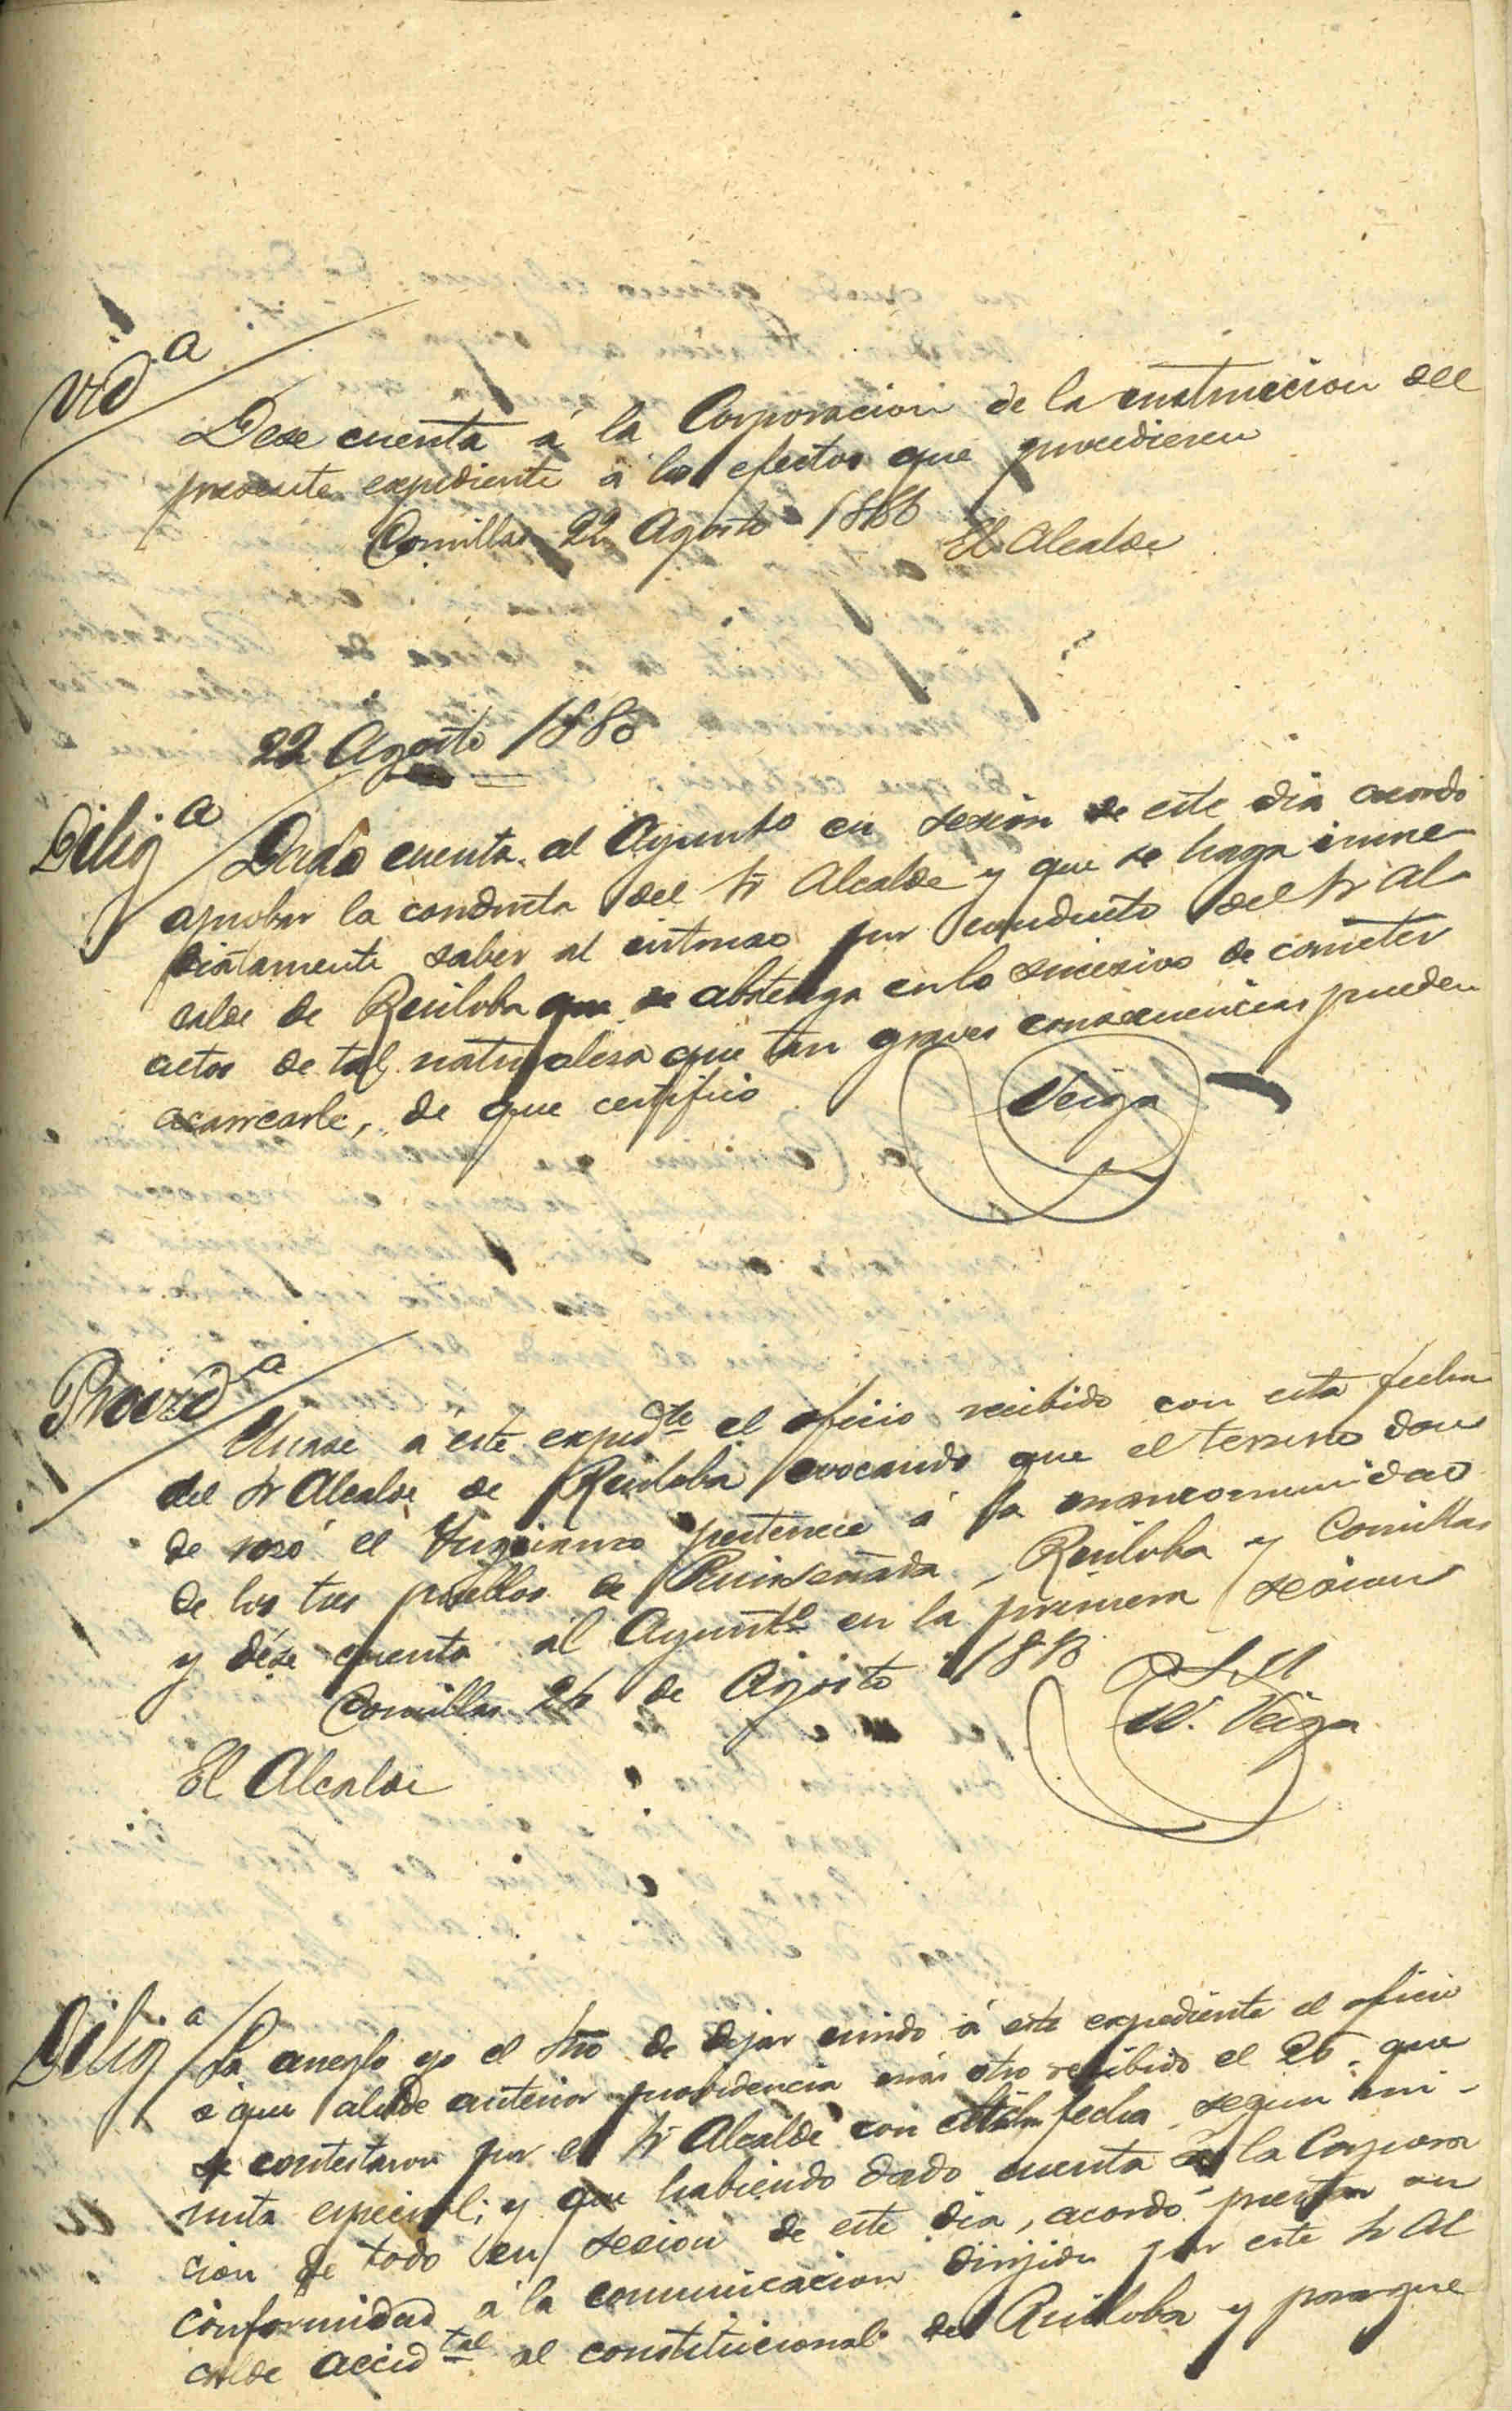 Vid<sup>a</sup>
Dese cuenta á la Corporacion de la instruccion del
presente expediente á los efectos que procedieren
Comillas 22 Agosto 1888 El Alcalde
22 Agosto 1888
Dilig<sup>a</sup> Dado cuenta al Ayunto en sesión de este dia acordó
aprobar la conducta del Sr Alcalde y que se haga inme-
diatamente saber al intruso por conducto del Sr Al-
calde de Ruiloba que se abstenga en lo sucesivo de cometer
actos de tal naturalesa que tan graves consecuencias pueden
acarrearle, de que certifico
Veiga
Provid<sup>a</sup>
Unase á este exped<sup>te</sup> el oficio recibido con esta fecha
del Sr Alcalde de Ruiloba evocando que el terreno don
de rozó el pertenece á la mancomunidad
de los tres pueblos de Ruiseñada, Ruiloba y Comillas
y dése cuenta al Ayunt<sup>o</sup> en la primera sesion
Comillas de Agosto 1888
El Alcalde
Veiga
Dilig<sup>a</sup> La arreglo yo el Srio de dejar unido á este expediente el oficio
á que alude anterior providencia más otro recibido el 25 que
se contestaron por el Sr Alcalde con fecha segun mi-
nuta especial; y que habiendo dado cuenta á la Corpora
cion de todo en sesion de este dia, acordó prestar su
conformidad á la comunicacion dirijida por este Sr Al
calde accid<sup>tal</sup> al constitucional de Ruiloba y para que